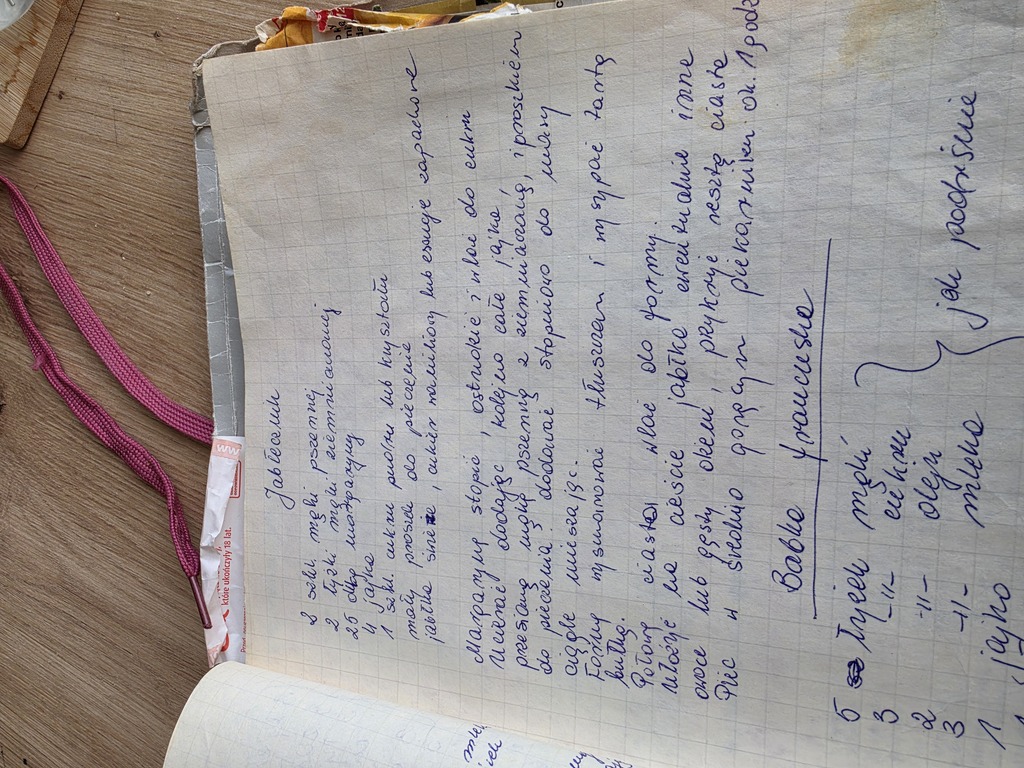 Jabłecznik
2 szkl. mąki pszennej
2 łyżki mąki ziemniaczanej
25 dkg margaryny
4 jajka
1 szkl. cukru pudru lub kryształu
mały proszek do pieczenia
jabłka, cukier waniliowy lub esencje zapachowe
Margarynę stopić, ostudzić i wlać do cukru
Ucierać dodając kolejno całe jajka,
przesianą mąkę pszenną z ziemniaczaną, i proszkiem
do pieczenia dodawać stopniowo do masy
ciągle mieszając.
Formę wysmarować tłuszczem i wysypać tartą
bułką.
Połowę ciasta wlać do formy.
Ułożyć na cieście jabłka ewentualnie inne
owoce lub gęsty dżem, przykryć resztą ciasta
Piec w średnio gorącym piekarniku ok. 1 godz
Babka francuska
5 łyżek mąki
3 -"- cukru
2 -"- oleju
3 -"- mleka
1 jajko
jak podziśnie
które ukończyły 18 lat.